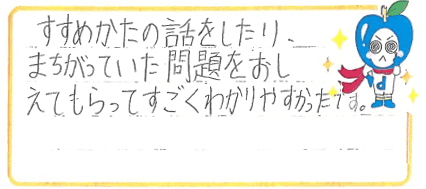 すすめかたの話をしたり、
まちがっていた問題をおし
えてもらってすごくわかりやすかったです。
d